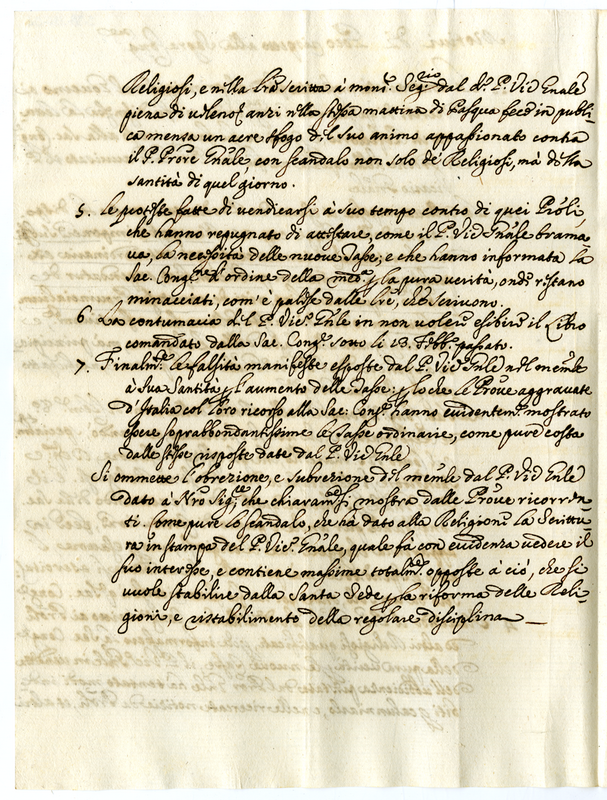 Religiosi, e nella lr̃a scritta à monsʳ. Segʳⁱᵒ dal dº. P. Vic Gñale
piena di veleno, anzi nella stessa mattina di Pasqua fece in publi-
ca mensa un acre sfogo del suo animo appassionato contra
il P. Prõre Gñale, con scandalo non solo de Religiosi, mà della
santità di quel giorno.
5. Le proteste fatte di vendicarsi à suo tempo contro di quei Priõli,
che hanno repugnato di attestare, come il P. Vic Gñale brama-
va, la necessità delle nuove Tasse, e che hanno informata la
Sac. Congⁿᵉ d'ordine della medᵃ la pura verità, onde restano
minacciati, com'è palese dalle lr̃e, che scrivono.
6 La contumacia del P. Vicº. Gñle in non volere esibire il libro
comandato dalla Sac. Congⁿᵉ sotto li 13. Febbº. passato.
7. Finalmᵗᵉ. le falsità manifeste esposte dal P. Vic Gñle nel memle
à Sua Santità l'aumento delle Tasse; lo che le Prov̄e aggravate
d'Italia col loro ricorso alla Sac: Congⁿᵉ hanno evidentemᵗᵉ mostrato
essere soprabbondantissime le Tasse ordinarie, come pure costa
dalle stesse risposte date dal P. Vic Gñle
Si ommette l'obrezione, e subrezione del memle dal P. Vic Gñle
dato à Nr̃o Sigʳᵉ, che chiaramᵗᵉ si mostra dalle Prov̄e ricorren-
ti. Come pure lo scandalo, che hà dato alla Religione la Scrittu-
ra in stampa del P. Vicº. Gñale, quale fà con evidenza vedere il
suo interesse, e contiene massime totalmᵗᵉ opposte à ciò, che si
vuole stabilire dalla Santa Sede la riforma delle Reli-
gioni, e ristabilimento della regolare disciplina